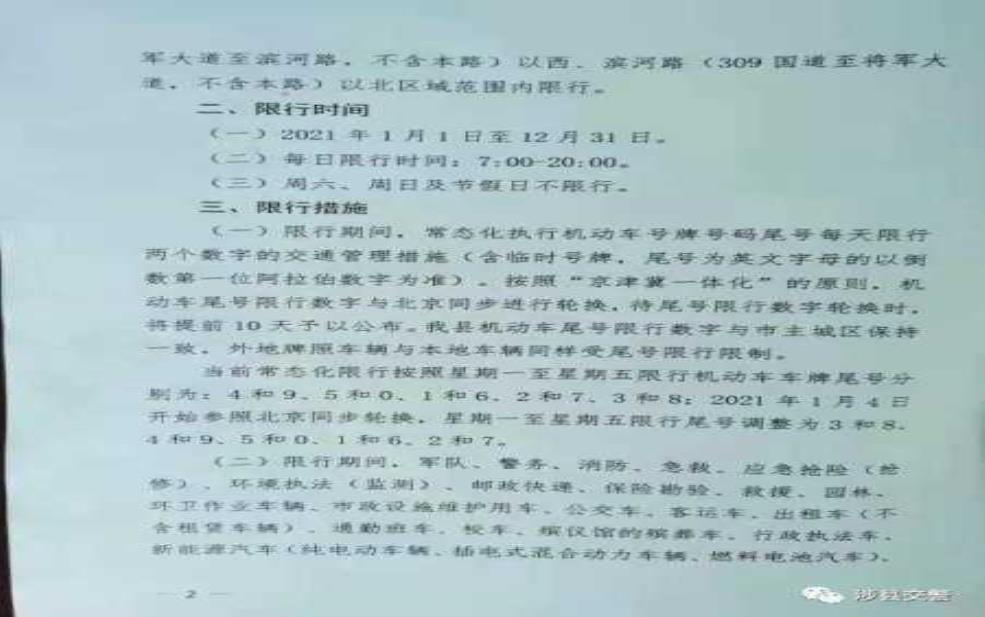 军大道至滨河路，不含本路）以西、滨河路（309 国道至将军大
道，不含本路）以北区域范围内限行。
二、限行时间
（一）2021 年 1 月 1 日至 12 月 31 日。
（二）每日限行时间：7:00-20:00。
（三）周六、周日及节假日不限行。
三、限行措施
（一）限行期间，常态化执行机动车号牌号码尾号每天限行
两个数字的交通管理措施（含临时号牌，尾号为英文字母的以倒
数第一位阿拉伯数字为准）。按照“京津冀一体化”的原则，机
动车尾号限行数字与北京同步进行轮换，待尾号限行数字轮换时，
将提前 10 天予以公布。我县机动车尾号限行数字与市主城区保持
一致，外地牌照车辆与本地车辆同样受尾号限行限制。
当前常态化限行按照星期一至星期五限行机动车车牌尾号分
别为：4 和 9、5 和 0、1 和 6、2 和 7、3 和 8；2021 年 1 月 4 日
开始参照北京同步轮换，星期一至星期五限行尾号调整为 3 和 8、
4 和 9、5 和 0、1 和 6、2 和 7。
（二）限行期间，军队、警务、消防、急救、应急抢险（抢
修）、环境执法（监测）、邮政快递、保险勘验、救援、园林、
环卫作业车辆、市政设施维护用车、公交车、客运车、出租车（不
含租赁车辆）、通勤班车、校车、殡仪馆的殡葬车、行政执法车、
新能源汽车（纯电动车辆、插电式混合动力车辆、燃料电池汽车）、
— 2 —
涉县交警